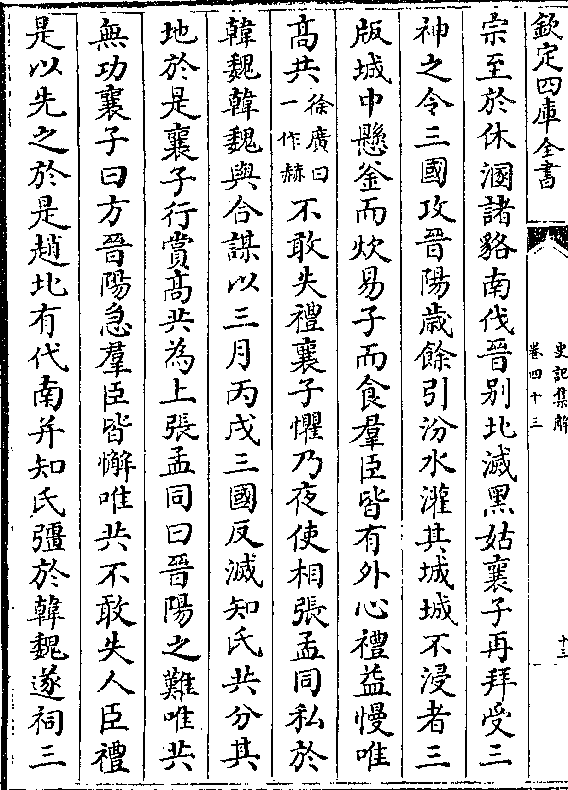 欽定四庫全書
史記集解
卷四十三
十三
宗至於休溷諸貉南伐晉别北滅黑姑襄子再拜受三
神之令三國攻晉陽歳餘引汾水灌其城城不浸者三
版城中懸釜而炊易子而食羣臣皆有外心禮益慢唯
髙共徐廣曰一作赫不敢失禮襄子懼乃夜使相張孟同私於
韓魏韓魏與合謀以三月丙戌三國反滅知氏共分其
地於是襄子行賞髙共為上張孟同曰晉陽之難唯共
無功襄子曰方晉陽急羣臣皆懈唯共不敢失人臣禮
是以先之於是趙北有代南并知氏彊於韓魏遂祠三